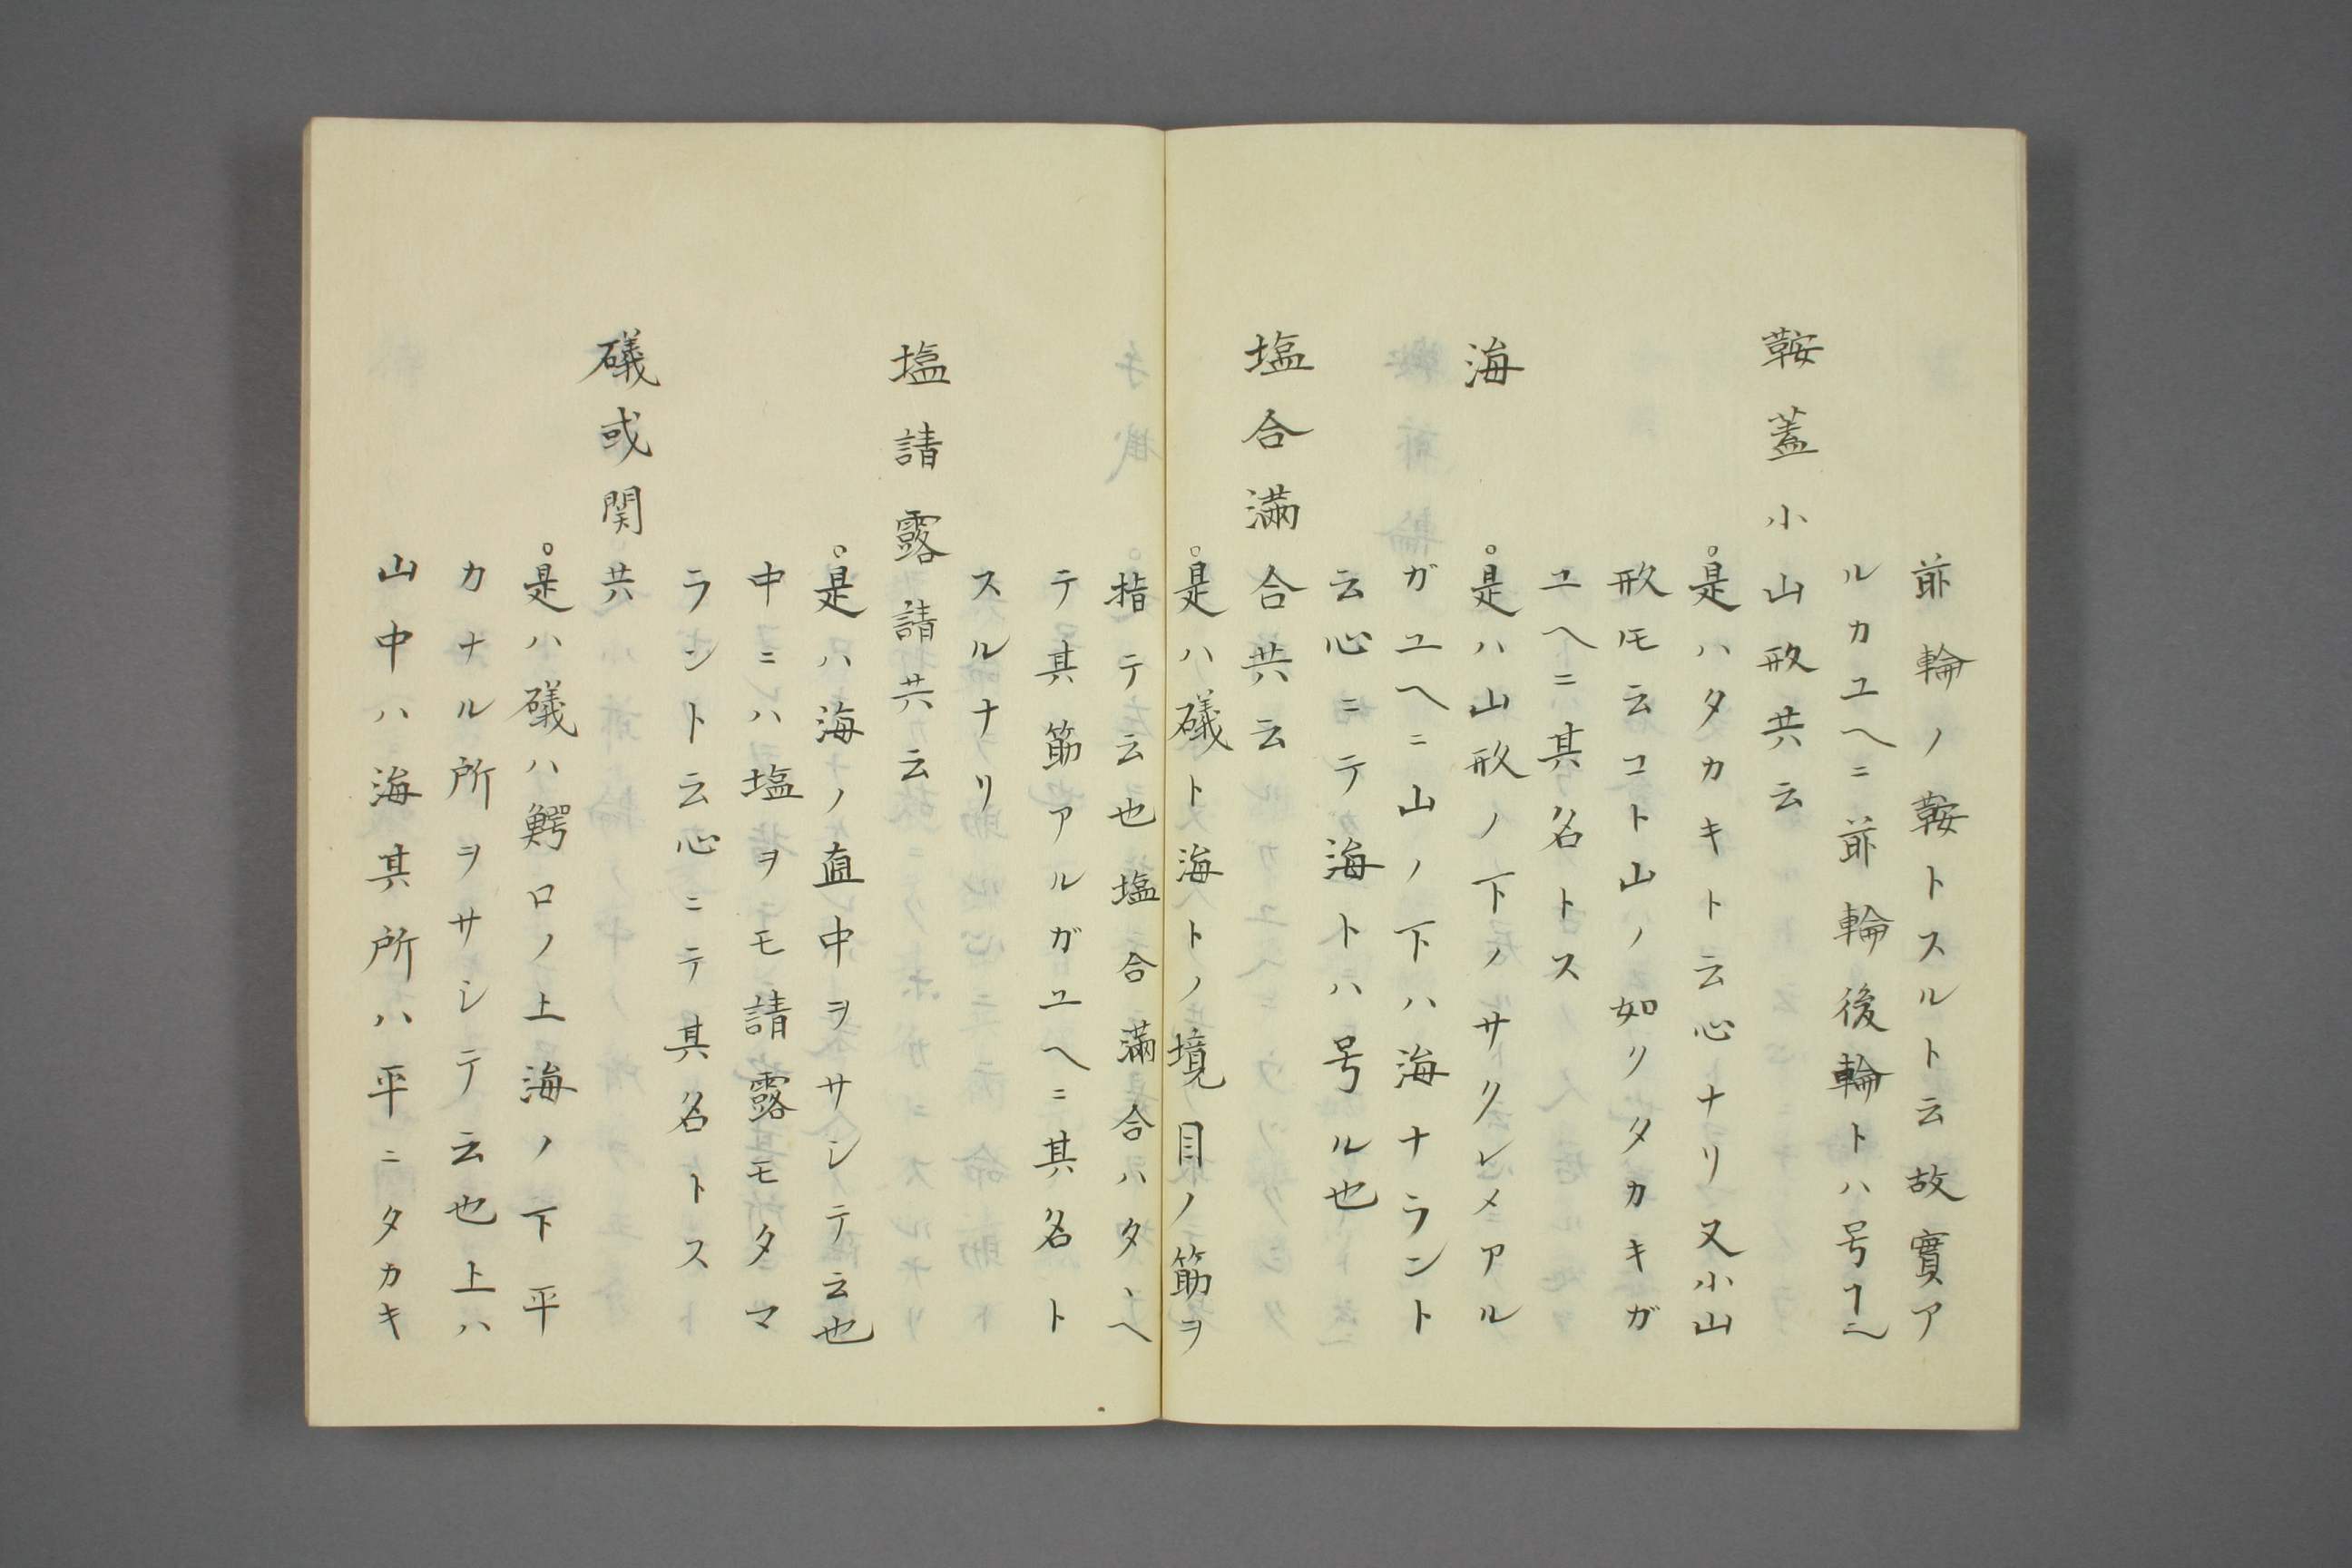 前輪ノ鞍トスルト云故實ア
ルカユヘニ前輪後輪トハ号ヿニ
鞍蓋小山形共云
。是ハタカキト云心ナリ又小山
形𪜈云コト山ノ如リタカキガ
ユヘニ其名トス
海
。是ハ山形ノ下ノサクレメアル
ガユヘニ山ノ下ハ海ナラント
云心ニテ海トハ号ル也
塩合満合共云
。是ハ礒ト海トノ境目ノ筋ヲ
指テ云也塩合満合ハタヽヘ
テ其筋アルガユヘニ其名ト
スルナリ
塩請露請共云
。是ハ海ノ直中ヲサシテ云也
中ニハ塩ヲモ請露モモタマ
ラント云心ニテ其名トス
礒或関共
。是ハ礒ハ鰐ロノ上海ノ下平
カナル所ヲサシテ云也上ハ
山中ハ海其所ハ平ニタカキ